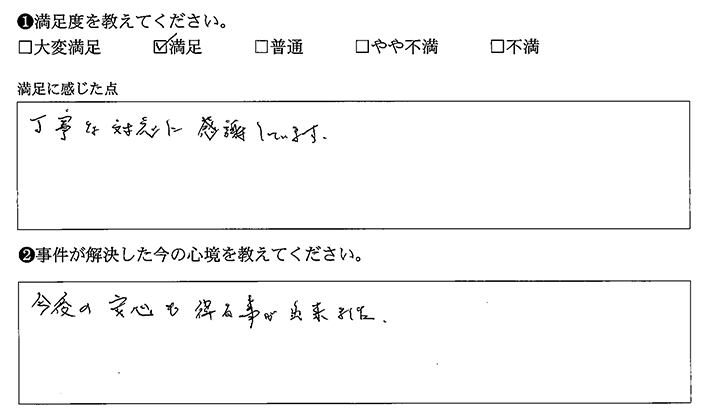 ❶満足度を教えてください。
□大変満足 ☑満足 □普通 □やや不満 □不満
満足に感じた点
丁寧な対応に感謝しています。
❷事件が解決した今の心境を教えてください。
今後の安心も得る事が出来ました。